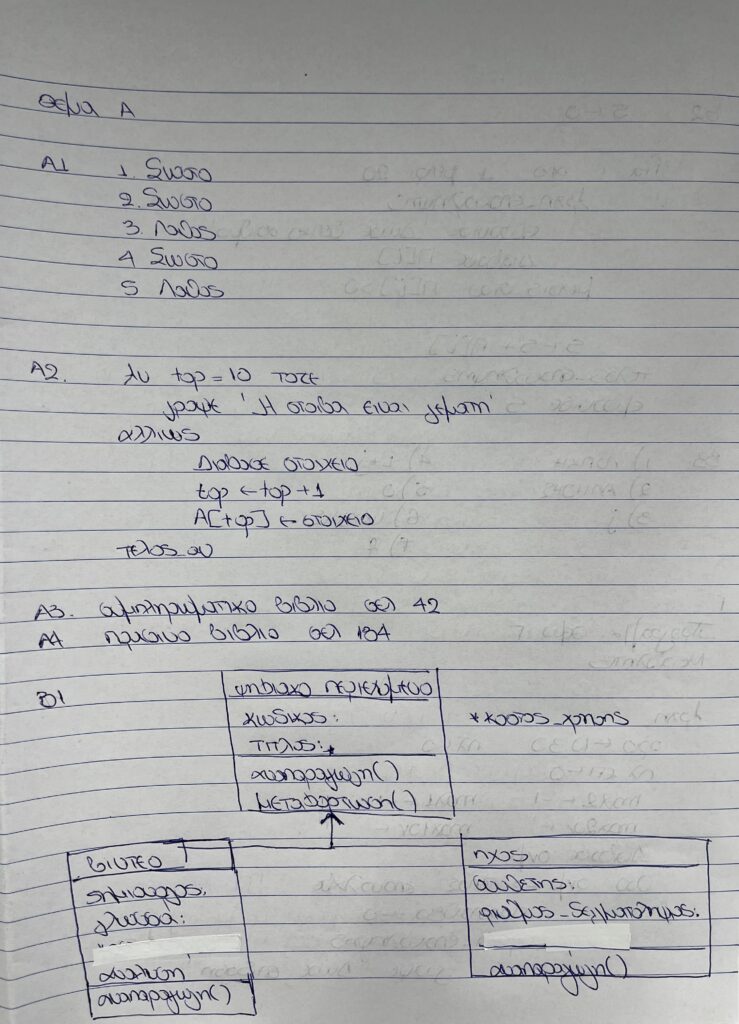 Θεμα Α
Α1 1. Σωστο
2. Σωστο
3. Λαθος
4 Σωστο
5 Λαθος
Α2. Αν top = 10 τοτε
γραψε 'Η στοιβα ειναι γεματη'
αλλιως
Διαβασε στοιχειο
top ← top + 1
Α[top] ← στοιχειο
τελος_αν
Α3. συμπληρωματικο βιβλιο σελ 42
Α4 παλαιο βιβλιο σελ 184
Β1
ψηφιακο περιεχομενο
κωδικος:
τιτλος: *
αναπαραγωγη()
μεταφορτωση()
*κοστος_χρησης
βιντεο
δημιουργος:
γλωσσα:
αναλυση
αναπαραγωγη()
ηχος
συνθετης:
ρυθμος_δειγματοληψιας:
αναπαραγωγη()